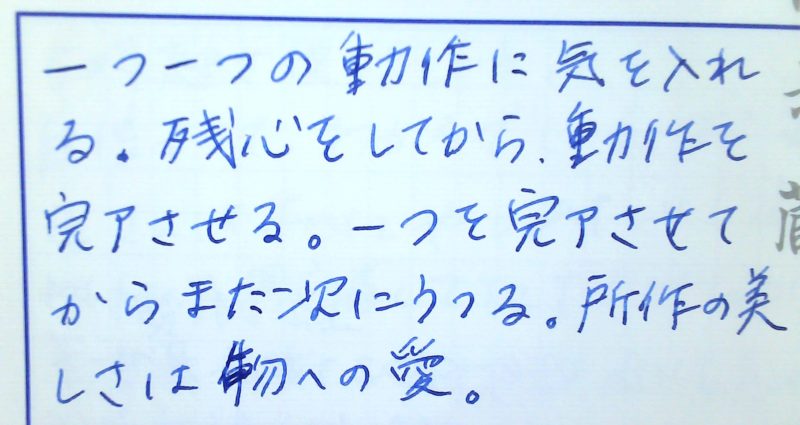 一つ一つの動作に気を入れ
る。残心をしてから、動作を
完了させる。一つを完了させて
からまた次にうつる。所作の美
しさは物への愛。
蔵